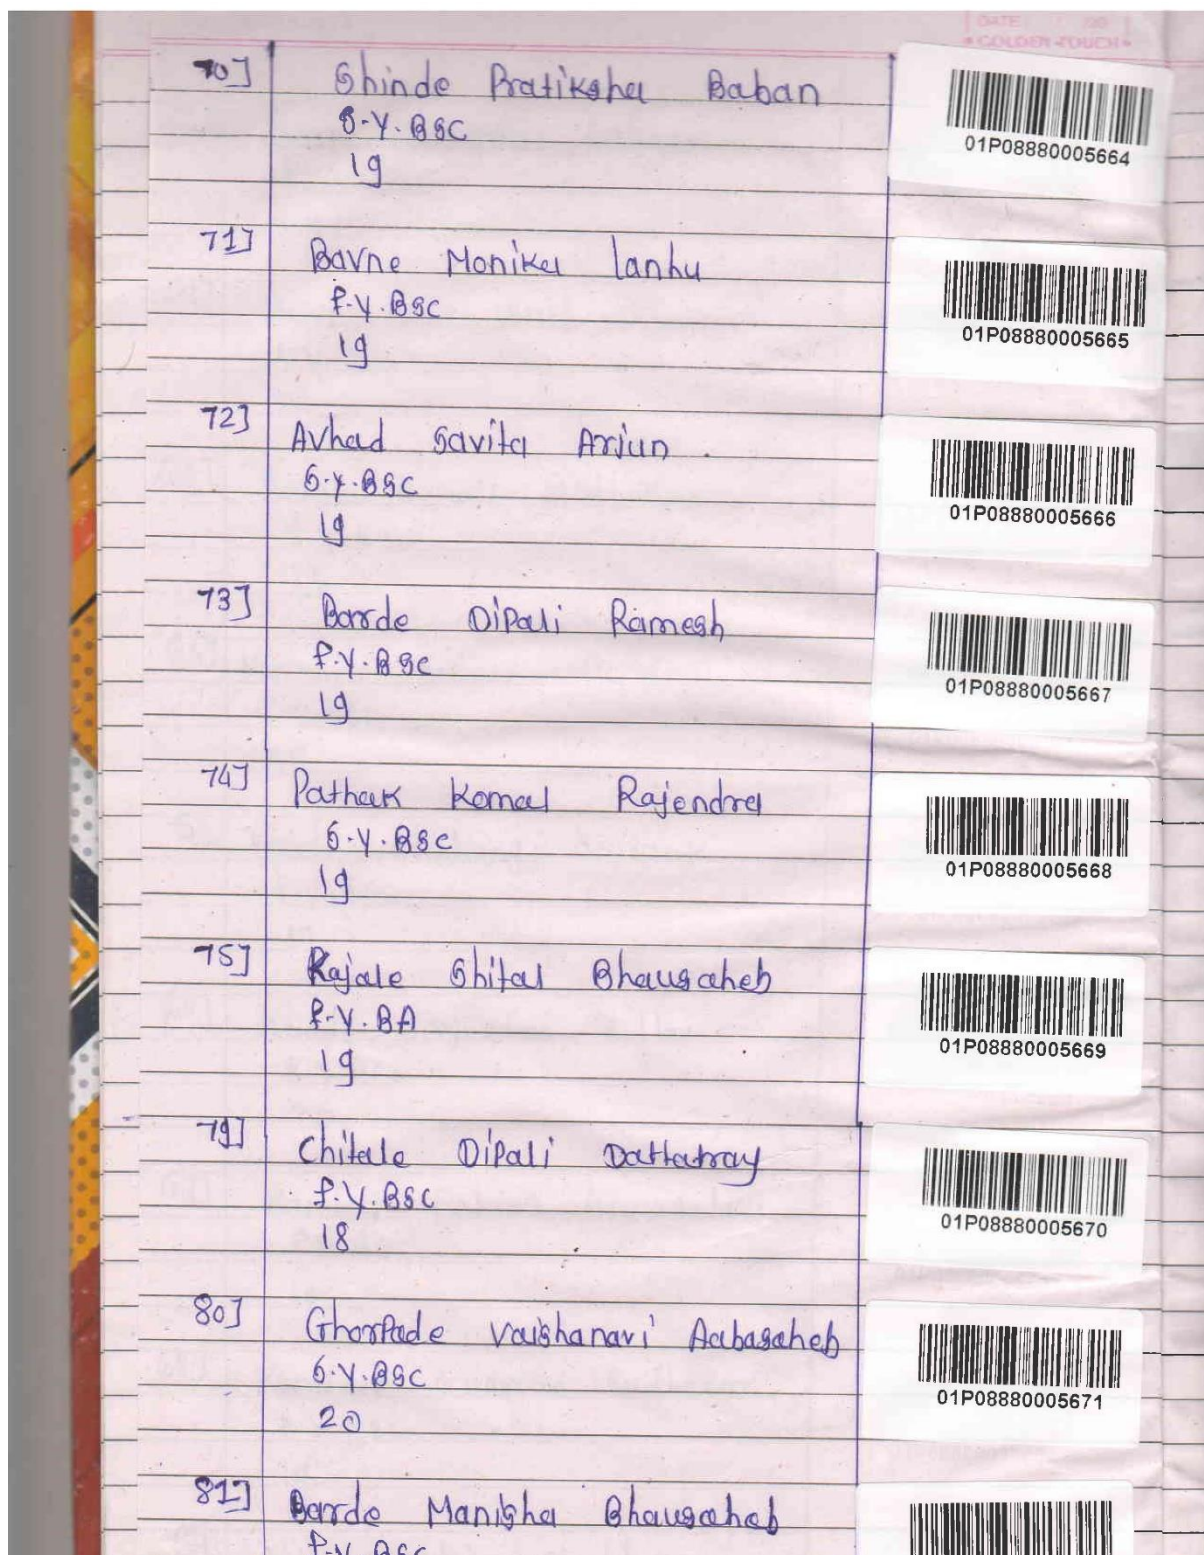 DATE
GOLDEN TOUCH
70] Shinde Pratiksha Baban
S.Y.BSC
19
01P08880005664
71] Bavne Monika lanhu
F.Y.BSC
19
01P08880005665
72] Avhad Savita Arjun.
S.Y.BSC
19
01P08880005666
73] Barde Dipali Ramesh
F.Y.BSC
19
01P08880005667
74] Pathak Komal Rajendra
S.Y.BSC
19
01P08880005668
75] Rajale Shital Bhausaheb
F.Y.BA
19
01P08880005669
79] Chitale Dipali Dattatray
F.Y.BSC
18
01P08880005670
80] Ghorpade Vaishanavi Aabasaheb
S.Y.BSC
20
01P08880005671
81] Barde Manisha Bhausaheb
F.Y.BSC